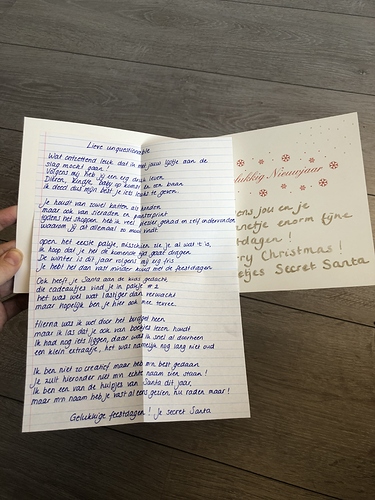 Lieve unquestionable
Wat ontzettend leuk dat ik met jouw lijstje aan de
slag mocht gaan!
Volgens mij heb jij een erg druk leven
Dieren, kindje, baby op komst en een baan
Ik deed dus mijn best je iets leuks te geven.
Je houdt van zowel katten als honden
maar ook van sieraden en panterprint
tijdens het shoppen heb ik veel plezier gehad en zelf ondervonden
waarom jij dit allemaal zo mooi vindt
open het eerste pakje, misschien zie je al wat 't is,
Ik hoop dat je het de komende tijd gaat dragen
De winter is dit jaar volgens mij erg fris
Je hebt het dan vast minder koud met de feestdagen
Ook heeft je Santa aan de kids gedacht,
die cadeautjes vind je in pakje # 2
het was wel wat lastiger dan verwacht
maar hopelijk ben je hier ook mee tevree.
Hierna was ik wel door het budget heen
maar ik las dat je ook van boekjes lezen houdt
Ik had nog iets liggen, daar was ik snel al doorheen
een klein extraatje, het was namelijk nog lang niet oud
Ik ben niet zo creatief maar heb m'n best gedaan
Je zult hieronder niet m'n echte naam zien staan!
Ik ben een van de hulpjes van Santa dit jaar,
maar m'n naam heb je vast al eens gezien, nu raden maar!
Gelukkige feestdagen! Je secret Santa
lukkig Nieuwjaar
ens jou en je
netje enorm fijne
tdagen!
ry Christmas!
etjes Secret Santa